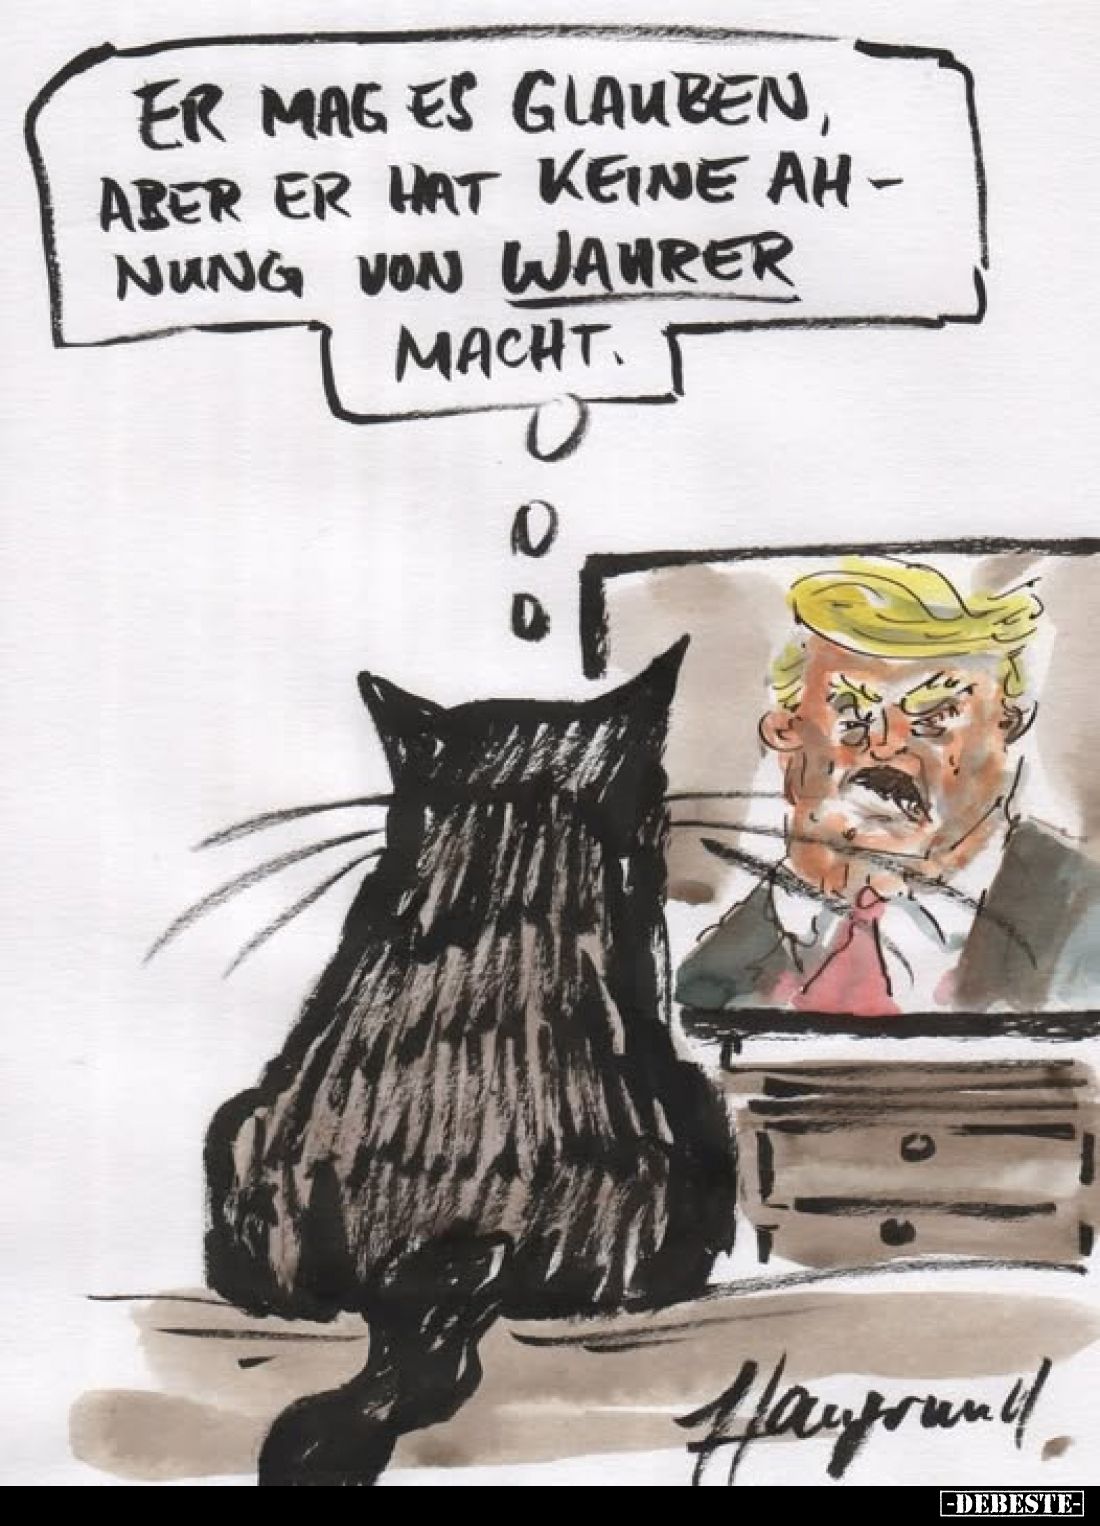 ER MAG ES GLAUBEN,
ABER ER HAT KEINE AH-
NUNG VON WAHRER
MACHT.
-DEBESTE-